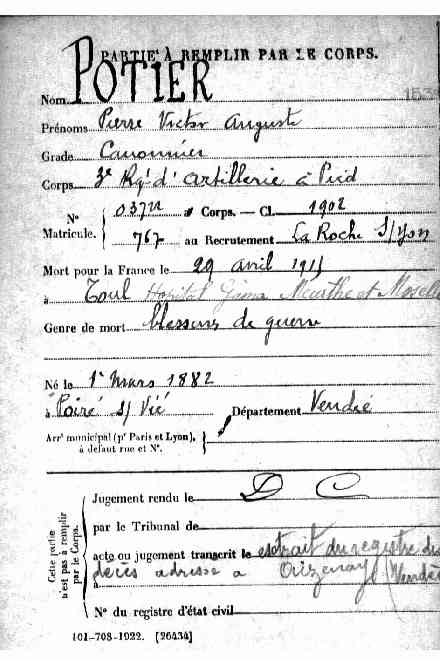 PARTIE À REMPLIR PAR LE CORPS.
Nom POTIER
Prénoms Pierre Victor Auguste
Grade Canonnier
Corps 3e Rgt d'artillerie à Pied
N° Matricule. 03721 Corps. — Cl. 1902
767 au Recrutement La Roche S/Yon
Mort pour la France le 29 avril 1915
à Toul Hopital Gama Meurthe et Moselle
Genre de mort blessures de guerre
Né le 1er mars 1882
à Poiré s/ Vié Département Vendée
Arrt municipal (pr Paris et Lyon),
à défaut rue et N°.
Cette partie n'est pas à remplir par le Corps.
Jugement rendu le D C
par le Tribunal de
acte ou jugement transcrit le extrait du registre des
décès adressé a Aizenay (Vendée
à
N° du registre d'état civil
101-708-1922. [26434]